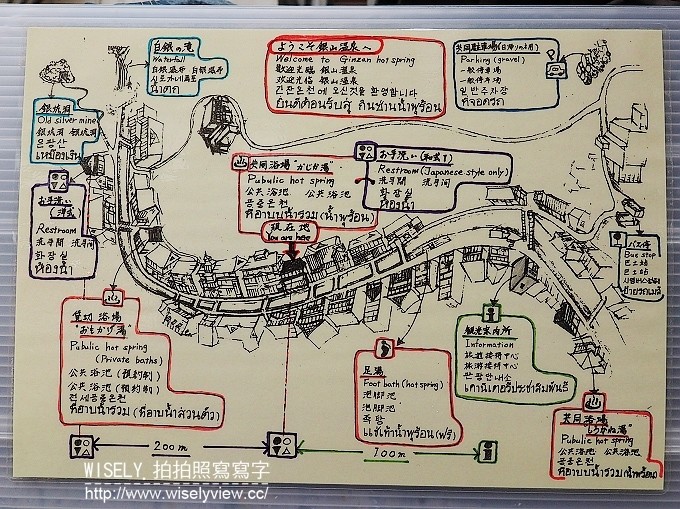 白銀の滝
Waterfall
白銀瀑布 白銀瀑布
น้ำตก
ようこそ銀山温泉へ
Welcome to Ginzan hot spring
歡迎光臨 銀山溫泉
欢迎光临 银山温泉
긴잔온천에 오신것을 환영합니다
ยินดีต้อนรับสู่ กินซานน้ำพุร้อน
Parking (gravel)
一般停車場
一般停车场
일반주차장
ที่จอดรถ
銀坑洞
Old silver mine
銀坑洞 银坑洞
은광산
เหมืองเงิน
お手洗い
(洋式)
Restroom
洗手間 洗手间
화장실
ห้องน้ำ
共同浴場 "かじか湯"
Pubulic hot spring
公共浴池 公共浴池
공중온천
ที่อาบน้ำรวม (น้ำพุร้อน)
お手洗い (和式)
Restroom (Japanese style only)
洗手間 洗手间
화장실
ห้องน้ำ
現在地
You are here
バス停
Bus stop
巴士站
巴士站
ป้ายรถเมล์
貸切浴場
"おもかげ湯"
Pubulic hot spring
(Private baths)
公共浴池 (預約制)
公共浴池 (预约制)
전세공중온천
ที่อาบน้ำรวม (ที่อาบน้ำส่วนตัว)
足湯
Foot bath (hot spring)
泡腳池
泡脚池
족탕
แช่เท้าน้ำพุร้อน (ฟรี)
観光案内所
Information
旅遊接待中心
旅游接待中心
관광안내소
เคาน์เตอร์ประชาสัมพันธ์
共同浴場
"しろがね湯"
Pubulic hot spring
公共浴池 公共浴池
공중온천
ที่อาบน้ำรวม (น้ำพุร้อน)
200m
100m
WISELY 拍拍照寫寫字
http://www.wiselyview.cc/